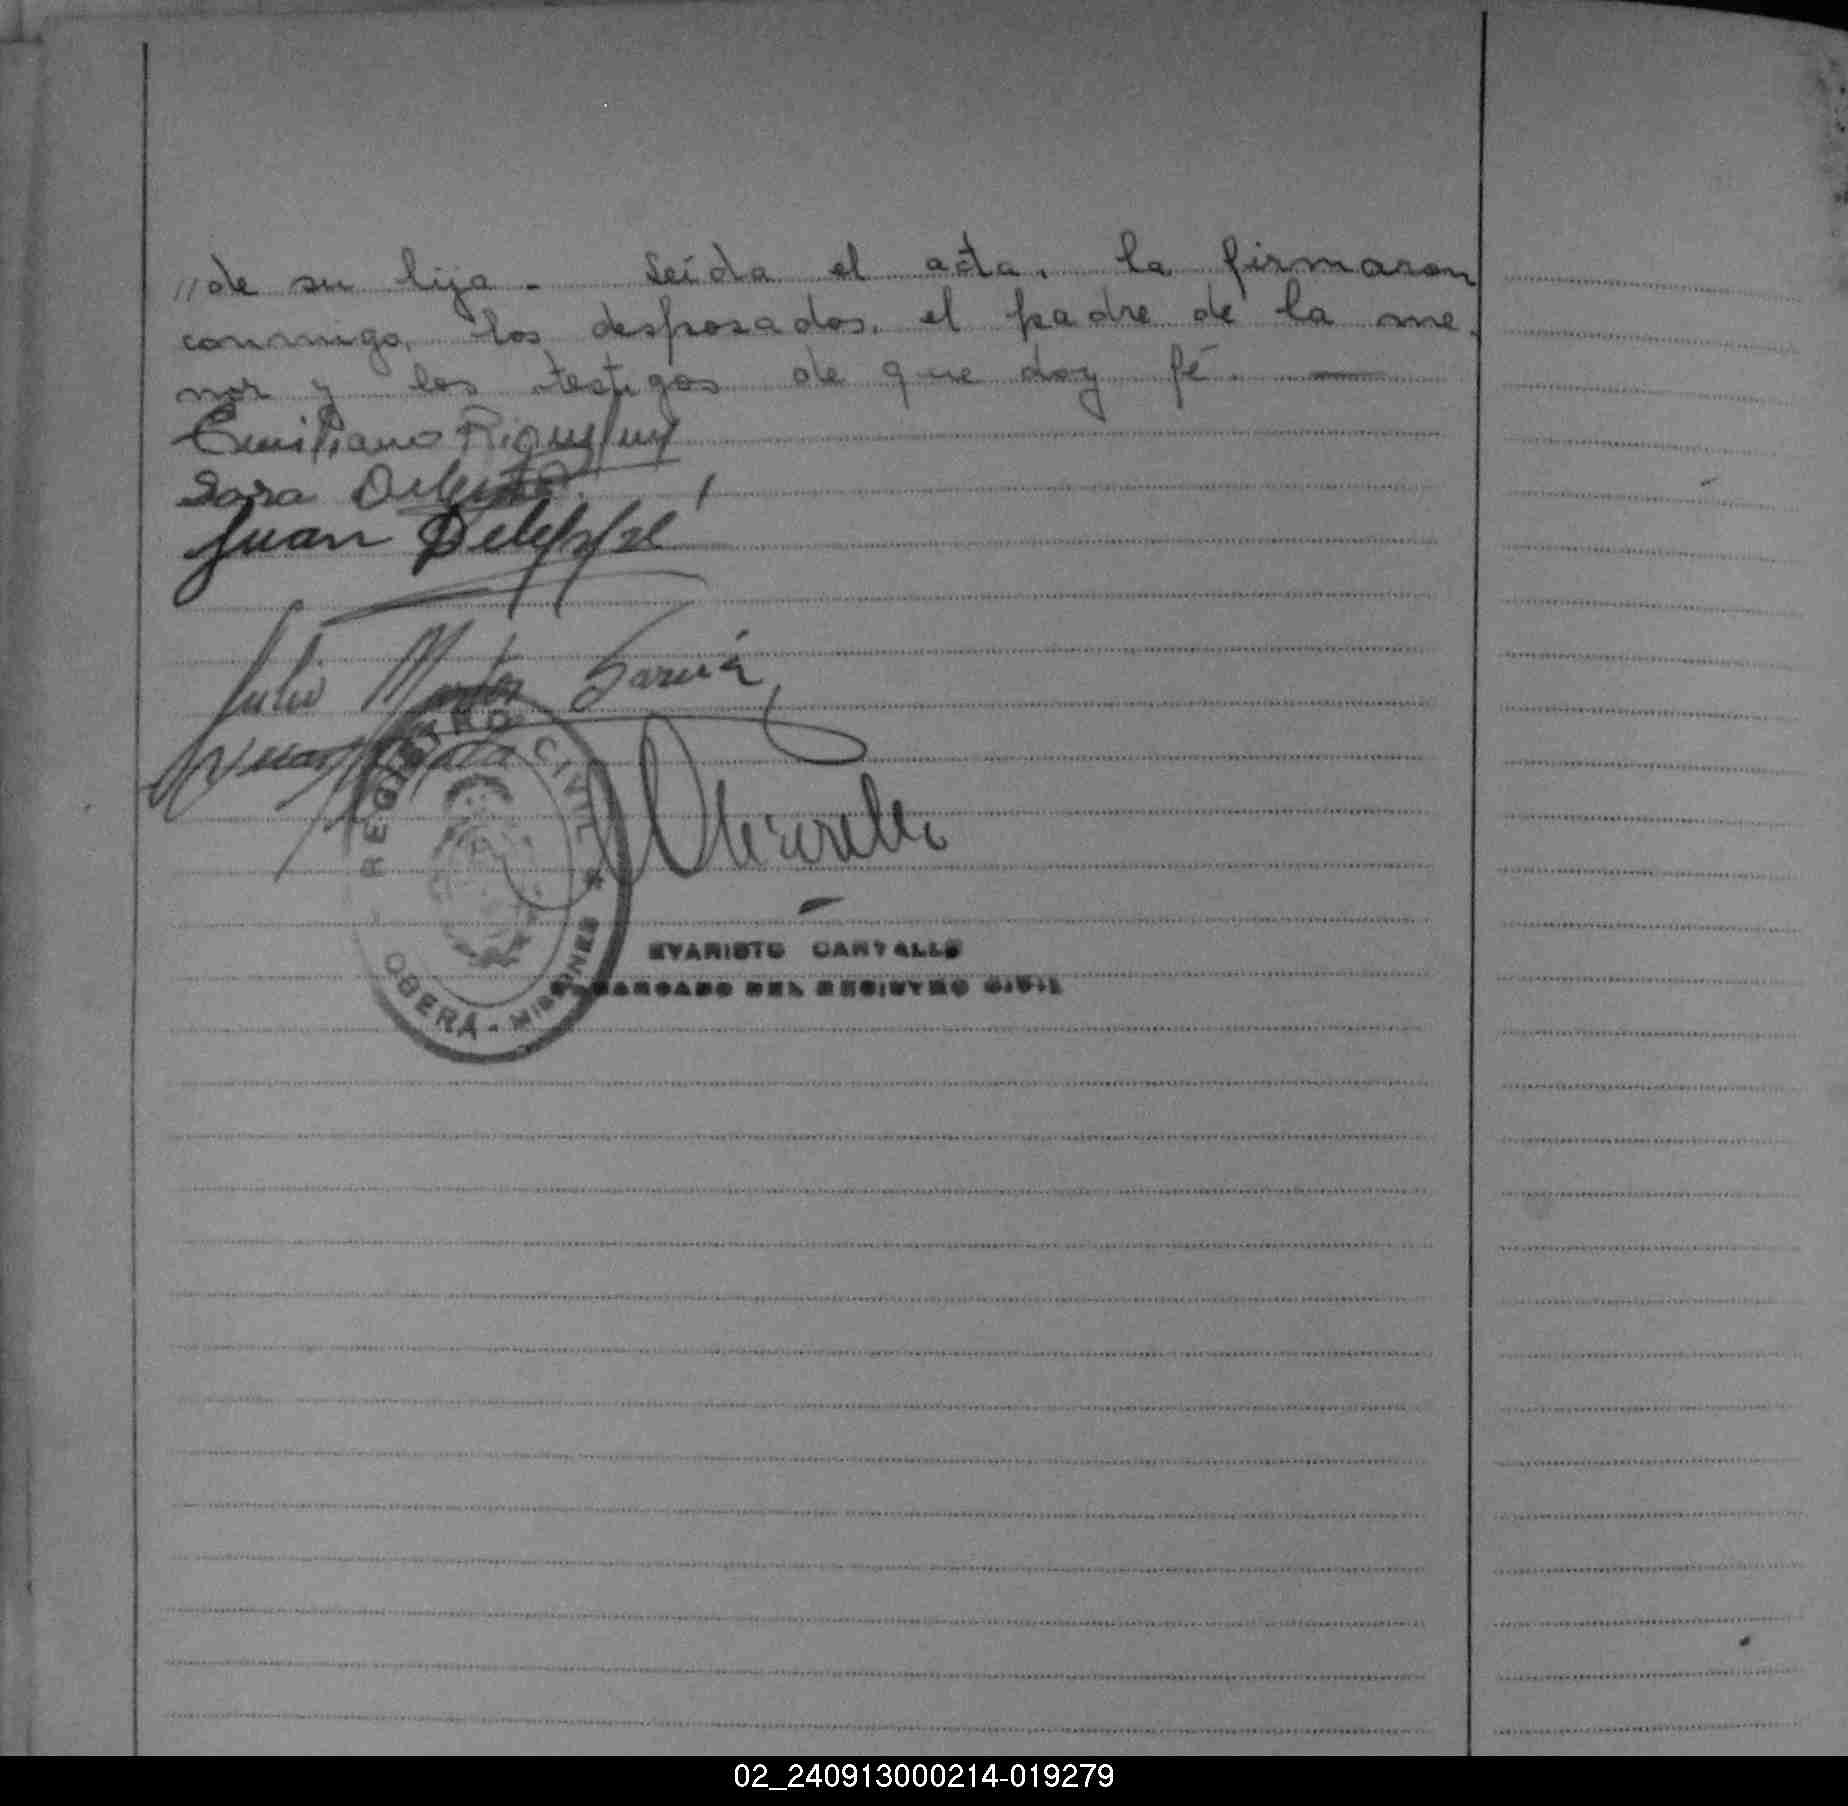 //de su hija - Leída el acta, la firmaron
conmigo, los desposados, el padre de la me-
nor y los testigos de que doy fé. —
Emiliano Riquelme
Sara
Juan
Julio Garcia
REGISTRO CIVIL
OBERÁ - MISIONES
EVARISTO CARVALLO
ENCARGADO DEL REGISTRO CIVIL
02_240913000214-019279